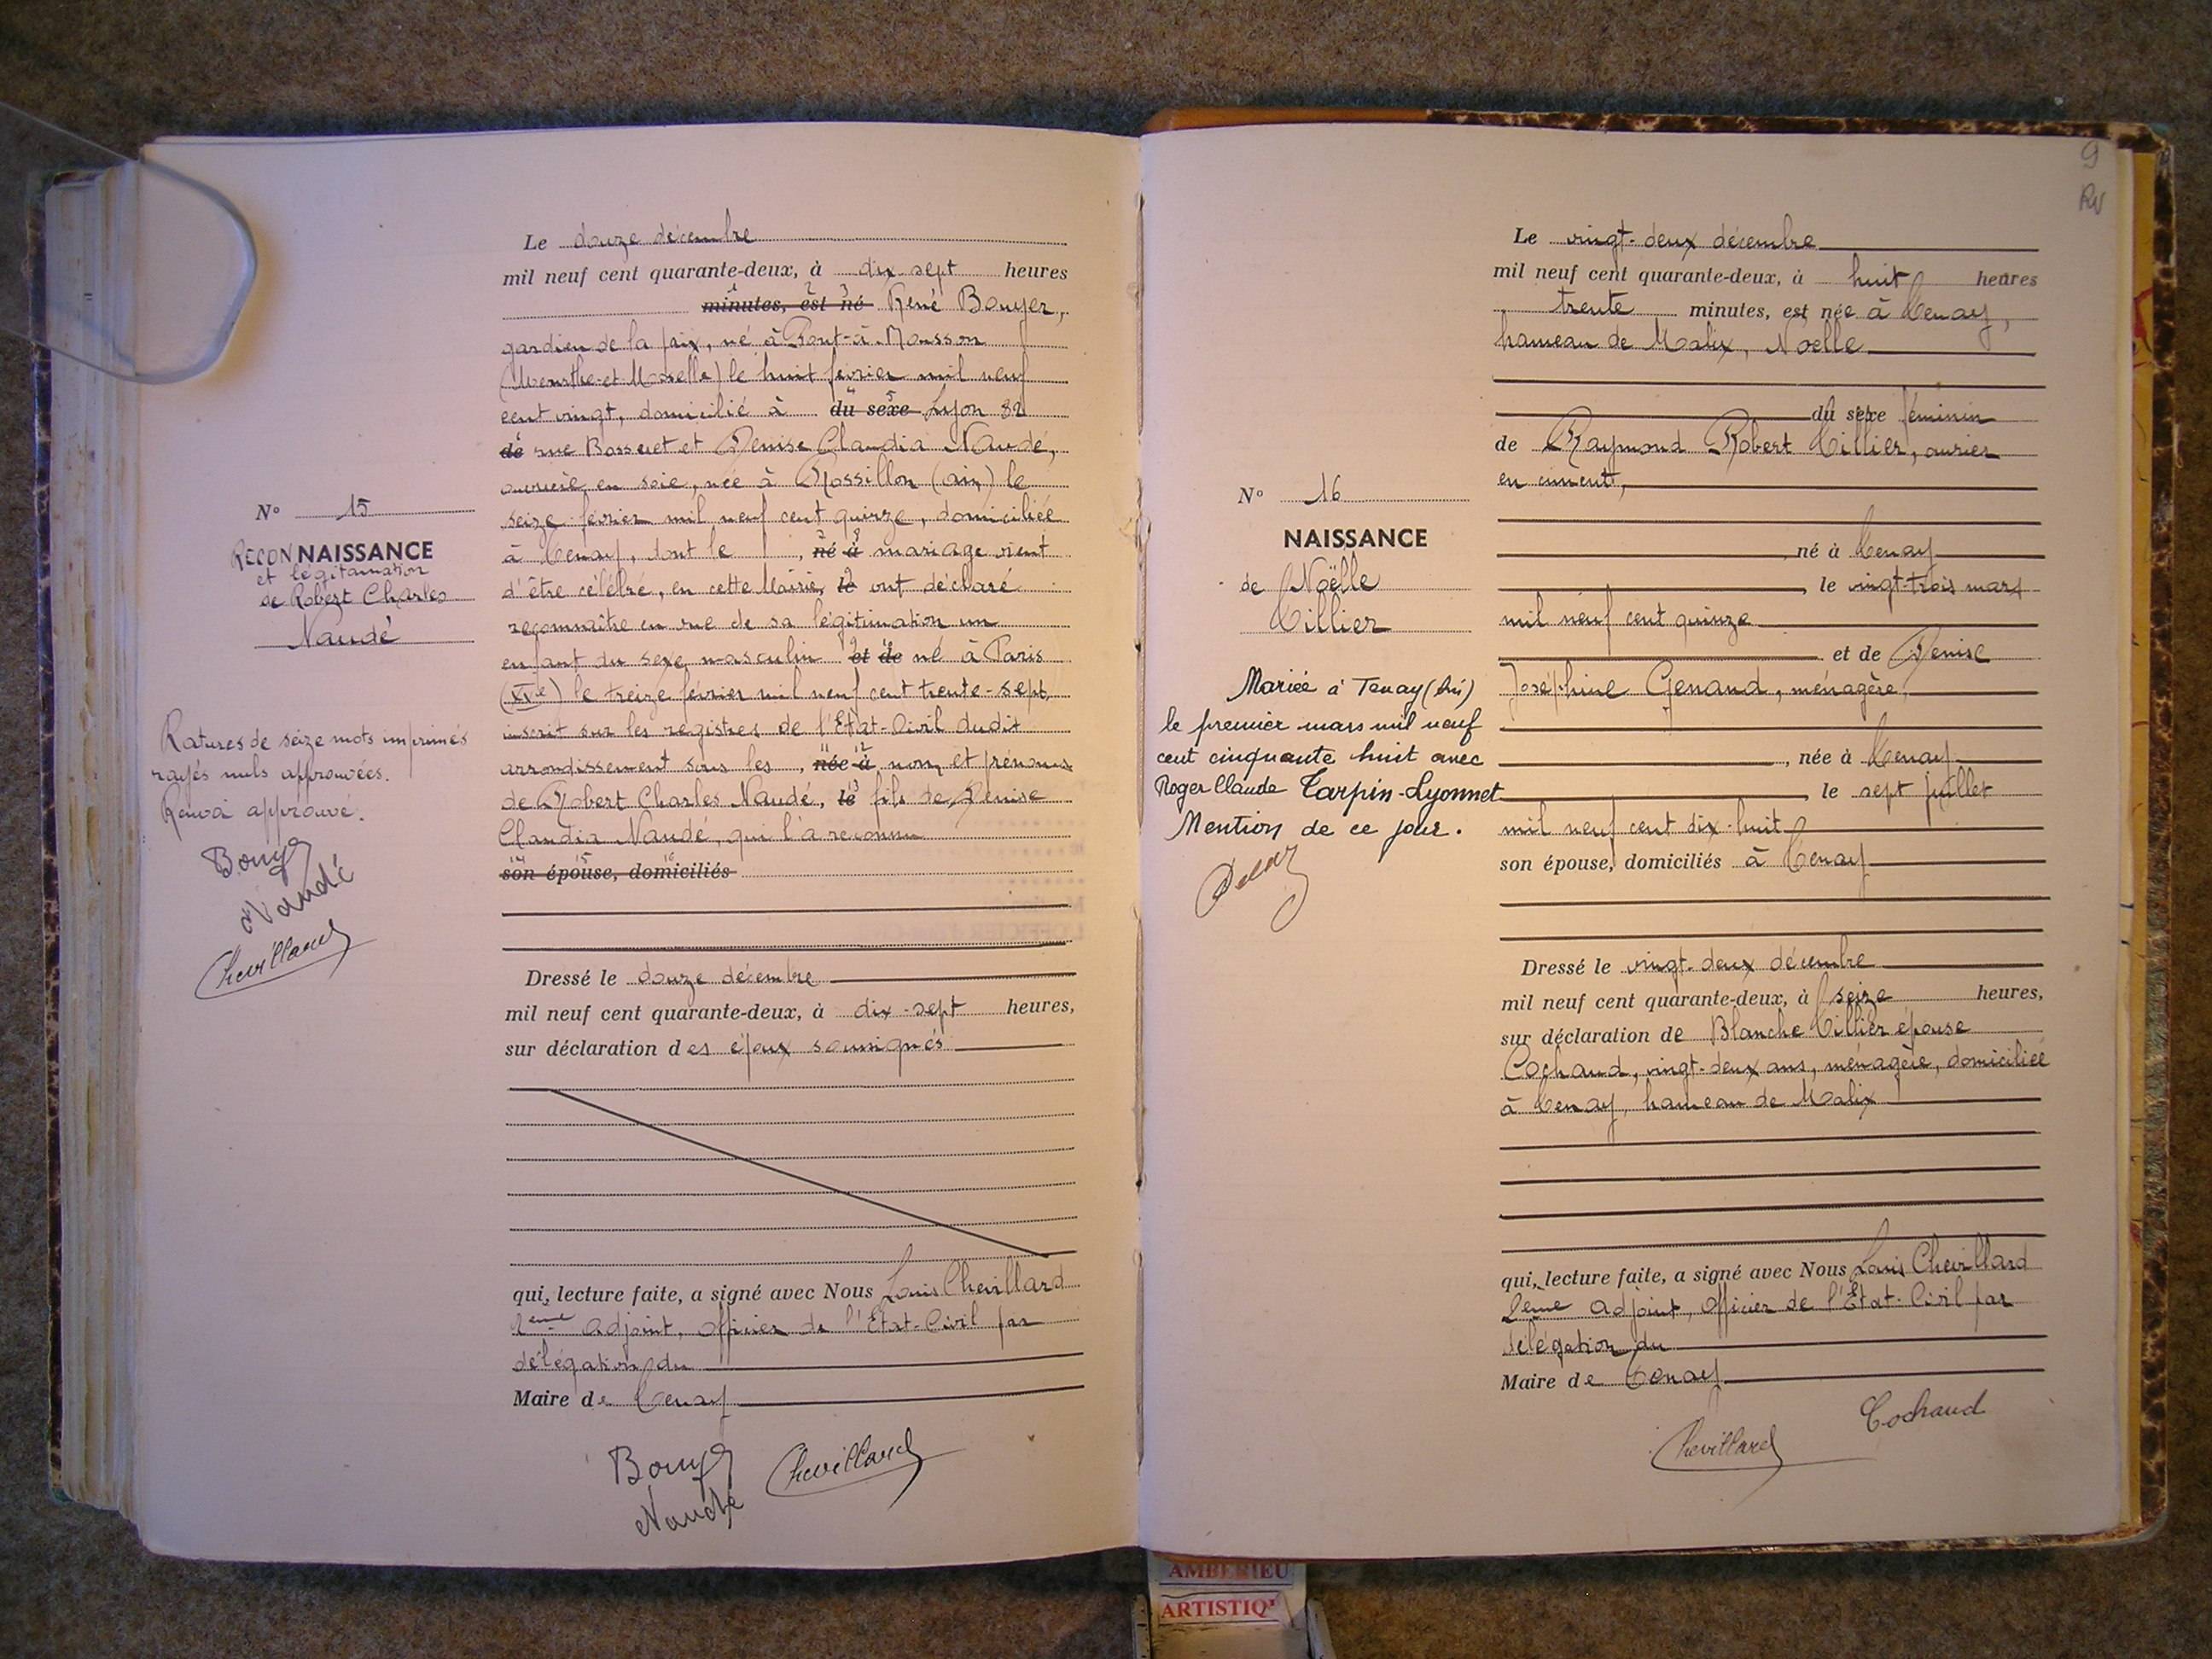 Le douze décembre
mil neuf cent quarante-deux, à dix-sept heures
minutes, est né René Bouyer,
gardien de la paix, né à Pont-à-Mousson
(Meurthe-et-Moselle) le huit février mil neuf
cent vingt, domicilié à du sexe Lyon 32
de rue Bossuet et Denise Claudia Naudé,
ouvrière en soie, née à Rossillon (Ain) le
seize février mil neuf cent quinze, domiciliée
à Tenay, dont le , né à mariage vient
d'être célébré, en cette Mairie, le ont déclaré
reconnaître en vue de sa légitimation un
enfant du sexe masculin et de né à Paris
(XVe) le treize février mil neuf cent trente-sept,
inscrit sur les registres de l'Etat-Civil dudit
arrondissement sous les , née à nom et prénoms
de Robert Charles Naudé, le fils de Denise
Claudia Naudé, qui l'a reconnu
son épouse, domiciliés
Dressé le douze décembre
mil neuf cent quarante-deux, à dix-sept heures,
sur déclaration des époux soussignés
qui, lecture faite, a signé avec Nous Louis Chevillard
2eme adjoint, officier de l'Etat-Civil par
délégation du
Maire de Tenay
Bouyer
Naudé
Chevillard
N° 15
RECONNAISSANCE
et légitimation
de Robert Charles
Naudé
Ratures de seize mots imprimés
rayés nuls approuvées.
Renvoi approuvé.
Bouyer
Naudé
Chevillard
9
RV
Le vingt-deux décembre
mil neuf cent quarante-deux, à huit heures
trente minutes, est née à Tenay,
hameau de Malix, Noëlle
du sexe féminin
de Raymond Robert Tillier, ouvrier
en ciment,
, né à Tenay
, le vingt-trois mars
mil neuf cent quinze
et de Denise
Joséphine Genand, ménagère,
, née à Tenay
, le sept juillet
mil neuf cent dix-huit
son épouse, domiciliés à Tenay
Dressé le vingt-deux décembre
mil neuf cent quarante-deux, à seize heures,
sur déclaration de Blanche Tillier épouse
Cochaud, vingt-deux ans, ménagère, domiciliée
à Tenay, hameau de Malix
qui, lecture faite, a signé avec Nous Louis Chevillard
2eme adjoint, officier de l'Etat-Civil par
délégation du
Maire de Tenay
Chevillard
Cochaud
N° 16
NAISSANCE
de Noëlle
Tillier
Mariée à Tenay (Ain)
le premier mars mil neuf
cent cinquante huit avec
Roger Claude Tarpin-Lyonnet
Mention de ce jour.
AMBERIEU
ARTISTIQ